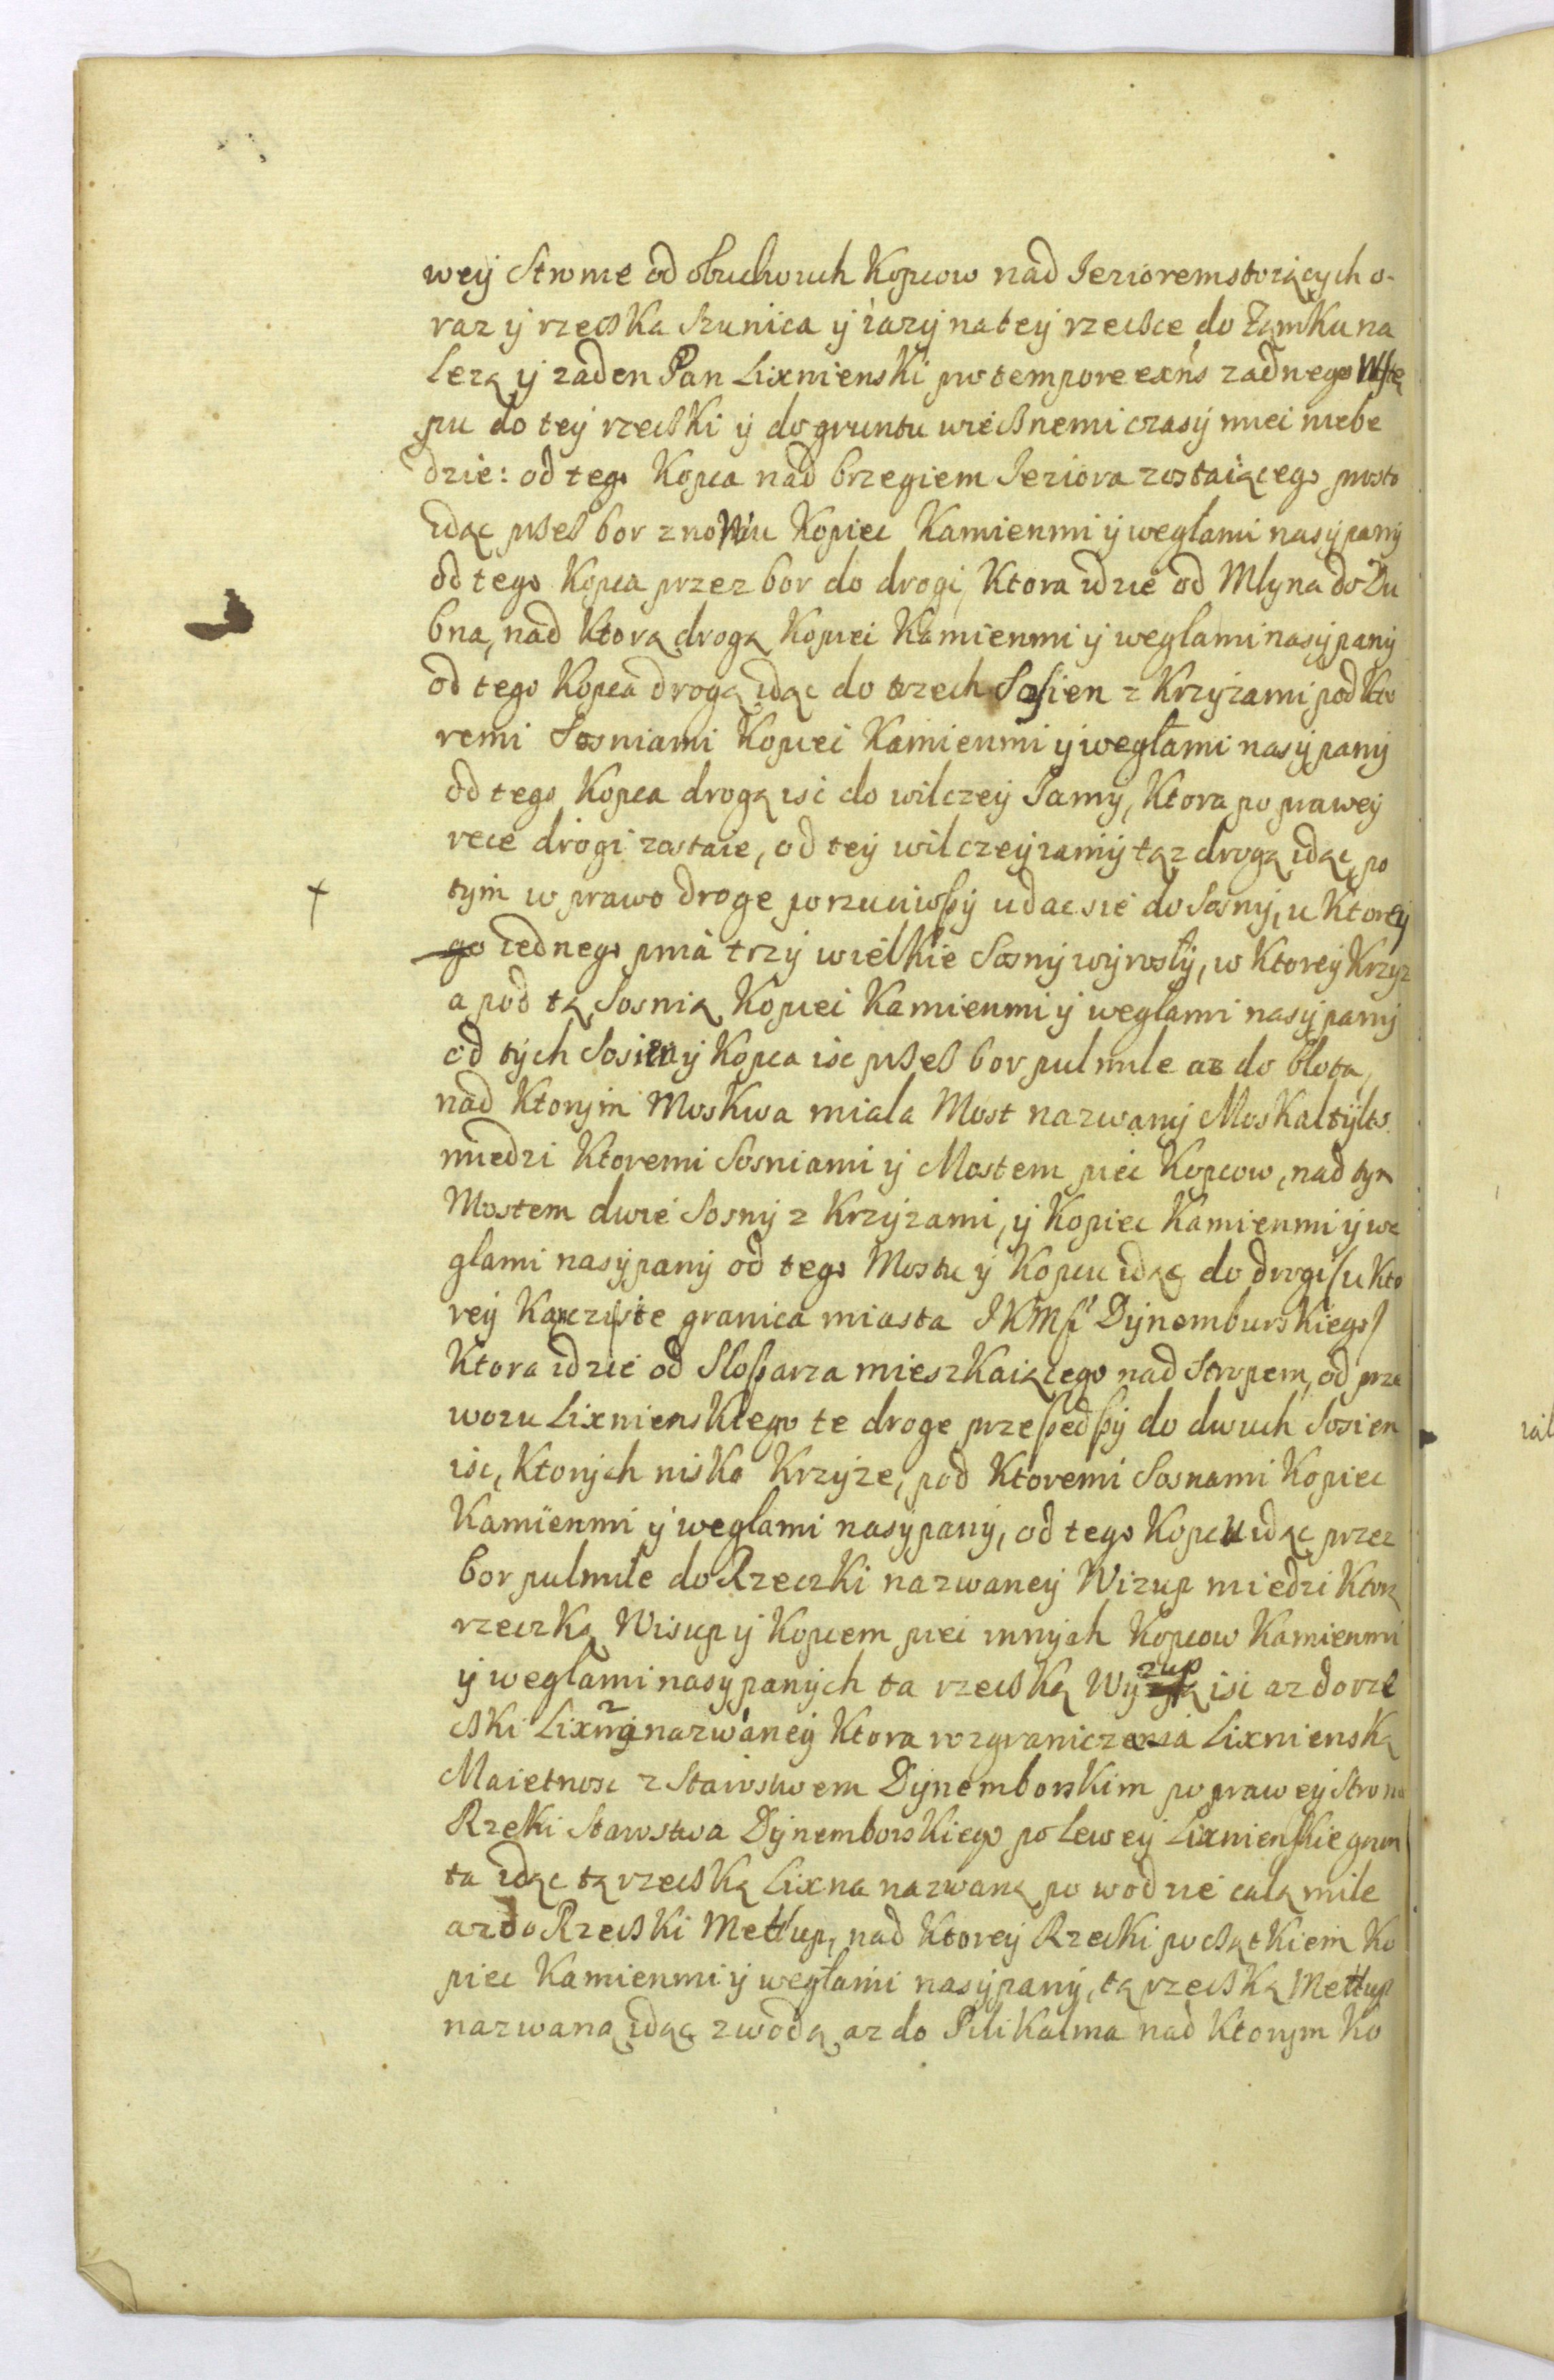 wey Strone od obuchwuch Kopcow nad Jeziorem stoiących o-
raz y rzecßka Szunica y iazy na tey rzecßce do Zamku na
leżą y zaden Pan Lixnienski pro tempore exñs zadnego Wstę
pu do tey rzecßki y do gruntu wiecßnemi czasy miec niebe
dzie: od tego Kopca nad brzegiem Jeziora zostaiącego prosto
idąc pßeß bor znowu Kopiec Kamienmi y weglami nasypany
od tego Kopca przez bor do drogi, Ktora idzie od Mlyna do Du
bna, nad Ktorą drogą Kopiec Kamienmi y weglami nasypany
od tego Kopca drogą idąc do trzech Sosien z Krzyżami pod Kto
remi Sosniami Kopiec Kamienmi y weglami nasypany
od tego Kopca drogą isc do wilczey Jamy, Ktora po prawey
rece drogi zostaie, od tey wilczey iamy tąz drogą idąc, po
tym w prawo droge porzuciwßy udac sie do Sosny, u Ktorey
go iednego pnia trzy wielkie Sosny wyrosly, w Ktorey Krzyz
a pod tą Sosnią Kopiec Kamienmi y weglami nasypany
od tych Sosien y Kopca isc pßeß bor pul mile az do blota,
nad Ktorym Moskwa miala Most nazwany Moskaltylts
miedzi Ktoremi Sosniami y Mostem piec Kopcow, nad tym
Mostem dwie Sosny z Krzyzami, y Kopiec Kamienmi y we
glami nasypany od tego Mostu y Kopcu idąc do drogi/ u Kto
rey Karcziste granica miasta JKMsci Dynemburskiego/
Ktora idzie od Sloßarza mieszkaiącego nad Stropem, od prze
wozu Lixnienskiego te droge przeßedßy do dwuch Sosien
isc, Ktorych nisko Krzyze, pod Ktoremi Sosnami Kopiec
Kamienmi y weglami nasypany, od tego Kopcu idąc przez
bor pulmile do Rzeczki nazwaney Wizup miedzi Ktorą
rzeczką Wisup y Kopcem piec innych Kopcow Kamienmi
y weglami nasypanych ta rzecßką Wyzup isc az do rze
cßki Lixny nazwaney Ktora rozgranicza Lixnienską
Maietnosc z Starostwem Dynemborskim po prawey Strone
Rzeki Starostwa Dynemborskiego po lewey Lixnienskie grun
ta idąc tą rzecßką Lixna nazwaną po wodzie calą mile
az do Rzecßki Metlup, nad Ktorey Rzecki pocßątkiem Ko
piec Kamienmi y weglami nasypany, tą rzecßką Metlup
nazwana idąc z wodą az do Pilikalma nad Ktorym Ko